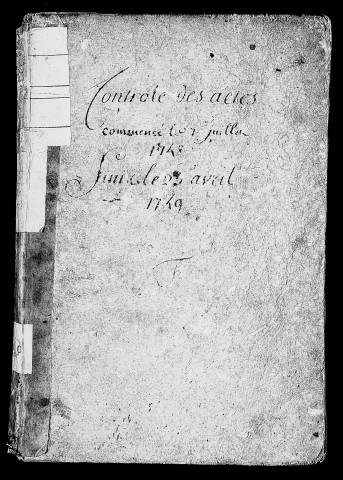 Controle des actes
commencé le juillet
1748
finie le avril
1749
F